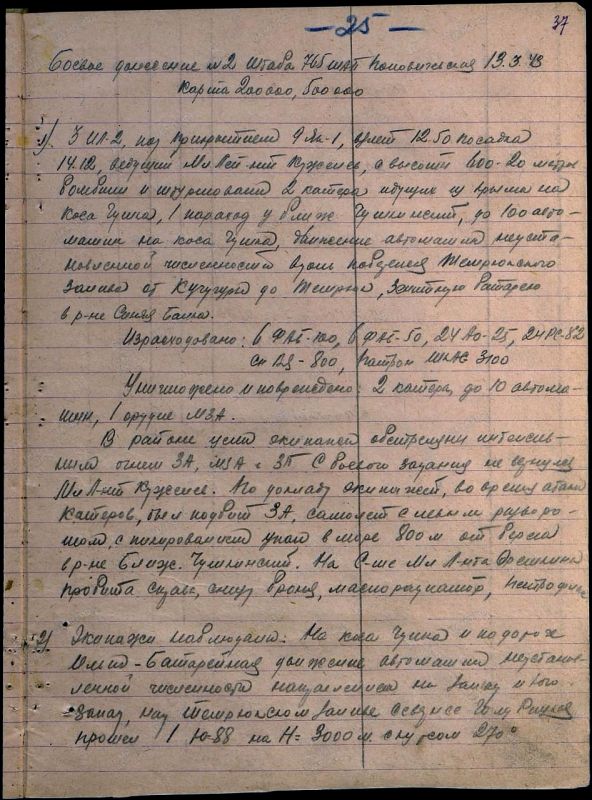 - 25 -
37
Боевое донесение №2 Штаба 765 шап Поповическая 13.3.43
Карта 200000, 500000
1/. 3 ИЛ-2, под прикрытием 9 Як-1, взлет 12.50 посадка
14.12, ведущий Мл Лейт-нт с высоты 600-20 метров
бомбили и штурмовали 2 катера идущих из Крыма на
коса Чушка, 1 пароход у Ближ. до 100 авто-
машин на коса Чушка, движение автомашин неуста-
новленной численности вдоль Темрюкского
залива от Кучугуры до Темрюк, зенитную батарею
в р-не Синяя Балка.
Израсходовано: 6 ФАБ-100, 6 ФАБ-50, 24 АО-25, 24 РС-82
сн 800, патрон ШКАС 3100
Уничтожено и повреждено: 2 катера, до 10 автома-
шин, 1 орудие МЗА.
В районе цели экипажи обстреляны интенсив-
ным огнем ЗА, МЗА и ЗП. С боевого задания не вернулся
Мл Л-нт По докладу экипажей, во время атаки
катеров, был подбит ЗА, самолет с левым разворо-
том, с пикирования упал в море 800 м от берега
в р-не Ближ. На С-те Мл Л-нта
пробита снизу броня, маслорадиатор,
2/ Экипажи наблюдали: На коса Чушка и по дороге
Ильич - Батарейная движение автомашин неустанов-
ленной численности направлением на запад и юго-
запад, над Темрюкским заливом
прошел 1 Ю-88 на Н= 3000 м с курсом 270°